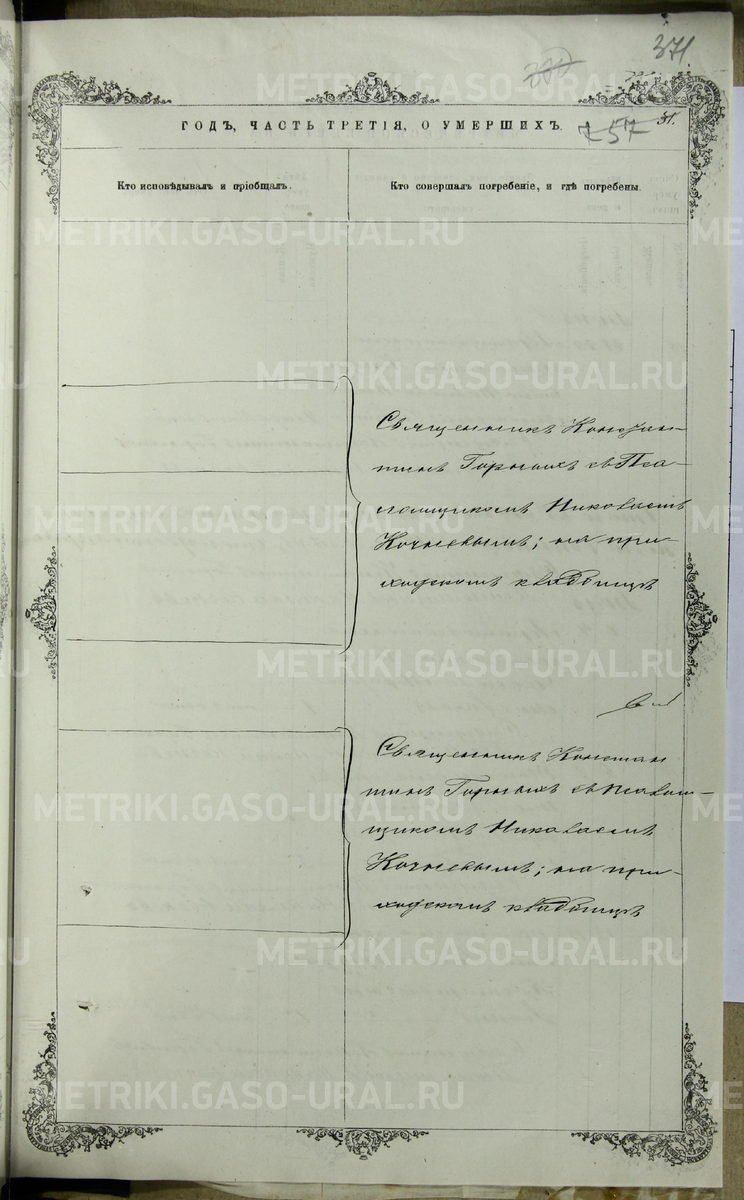 371
ГОДЪ, ЧАСТЬ ТРЕТІЯ, О УМЕРШИХЪ.
757
31.
Кто исповѣдывалъ и пріобщалъ.
Кто совершалъ погребеніе, и гдѣ погребены.
Священникъ Констан-
тинъ Горныхъ съ Пса-
ломщикомъ Николаемъ
Кочневымъ; на при-
ходскомъ кладбищѣ
Священникъ Констан
тинъ Горныхъ съ Псалом-
щикомъ Николаемъ
Кочневымъ; на при-
ходскомъ кладбищѣ
METRIKI.GASO-URAL.RU
METRIKI.GASO-URAL.RU
METRIKI.GASO-URAL.RU
METRIKI.GASO-URAL.RU
METRIKI.GASO-URAL.RU
METRIKI.GASO-URAL.RU
METRIKI.GASO-URAL.RU
METRIKI.GASO-URAL.RU